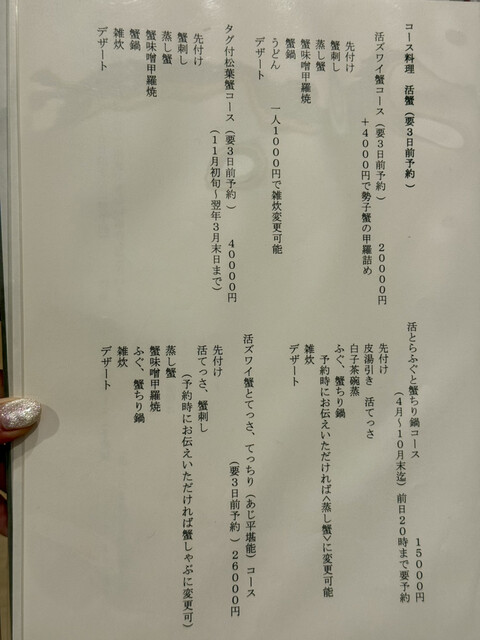 コース料理　活蟹（要3日前予約）
活ズワイ蟹コース（要3日前予約）　20000円
＋4000円で勢子蟹の甲羅詰め
先付け
蟹刺し
蒸し蟹
蟹味噌甲羅焼
蟹鍋
うどん　一人1000円で雑炊変更可能
デザート
タグ付松葉蟹コース（要3日前予約）　40000円
（11月初旬～翌年3月末日まで）
先付け
蟹刺し
蒸し蟹
蟹味噌甲羅焼
蟹鍋
雑炊
デザート
活とらふぐと蟹ちり鍋コース　15000円
（4月～10月末迄）前日20時まで要予約
先付け
皮湯引き　活てっさ
白子茶碗蒸
ふぐ、蟹ちり鍋
予約時にお伝えいただければ＜蒸し蟹＞に変更可能
雑炊
デザート
活ズワイ蟹とてっさ、てっちり（あじ平堪能）コース
（要3日前予約）26000円
先付け
活てっさ、蟹刺し
（予約時にお伝えいただければ蟹しゃぶに変更可）
蒸し蟹
蟹味噌甲羅焼
ふぐ、蟹ちり鍋
雑炊
デザート